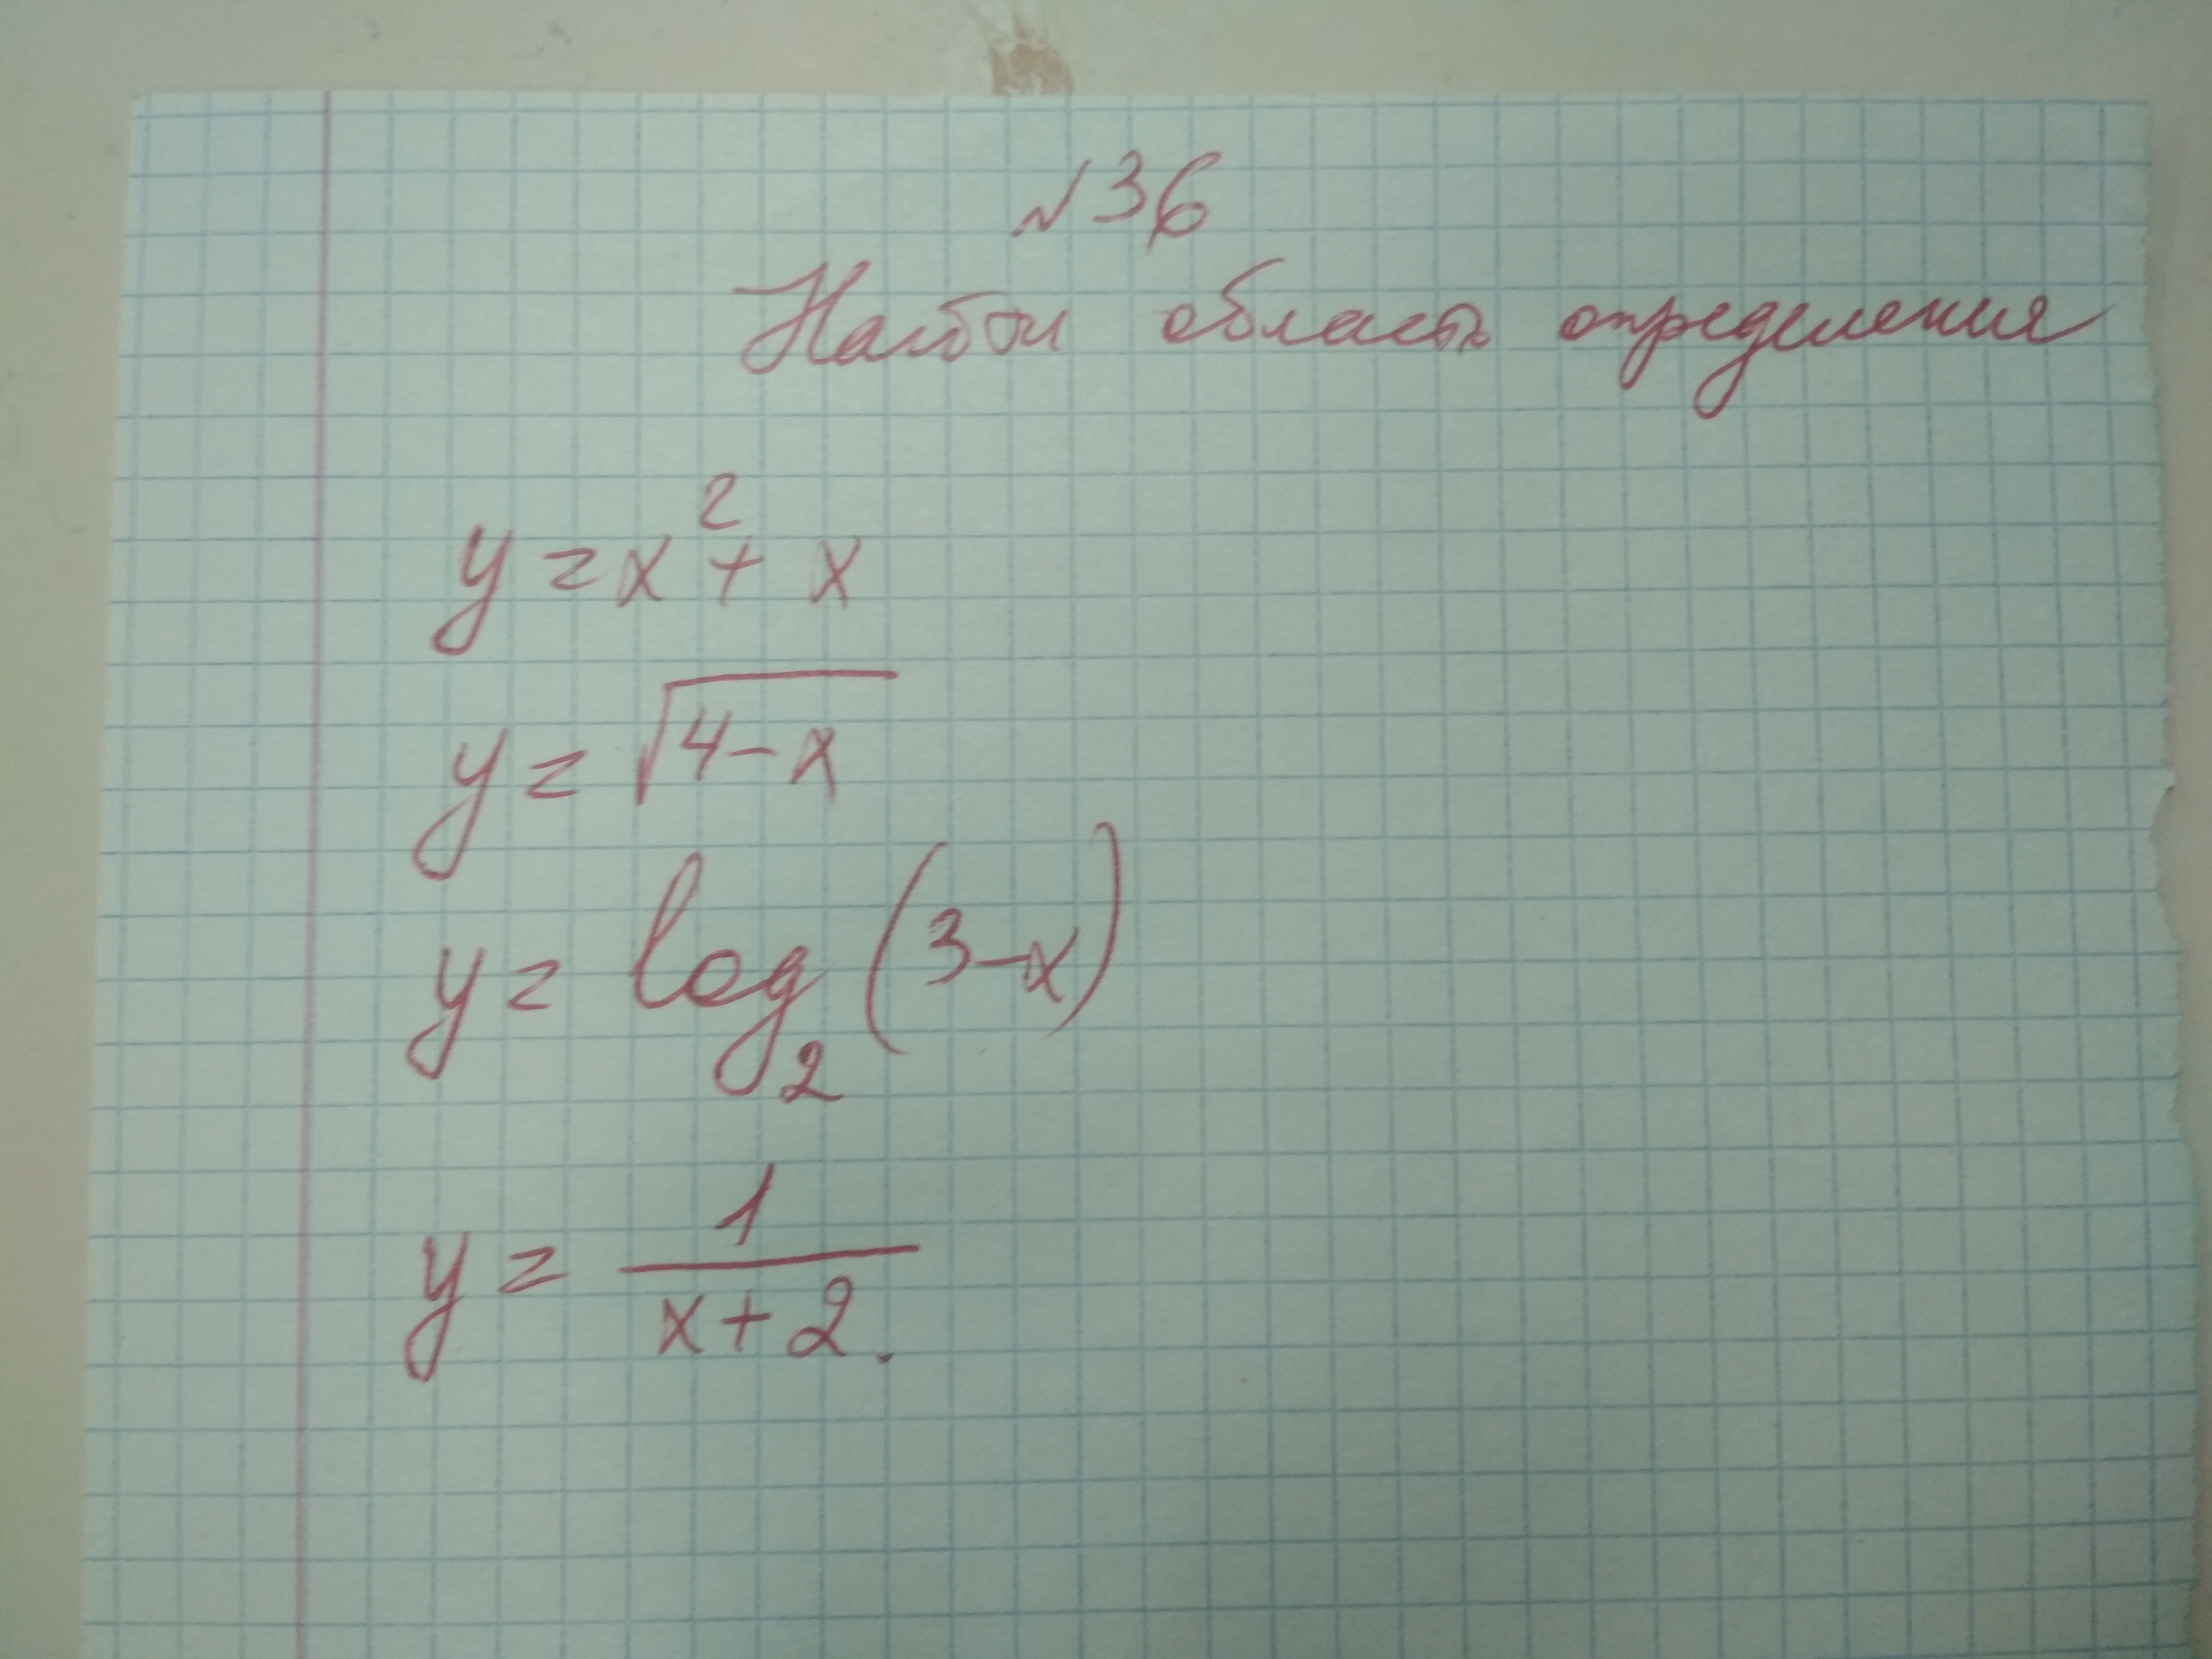 №36
Найти область определения
y = x² + x
y = √(4-x)
y = log₂(3-x)
y = 1/(x+2).